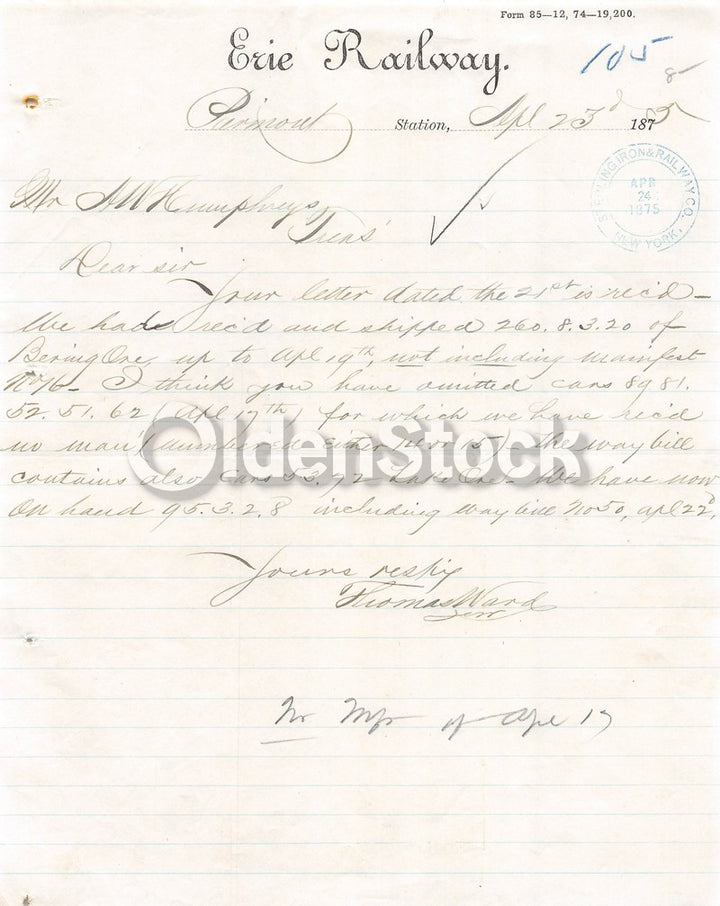 Form 85—12, 74—19,200.
Erie Railway.
105
8
Piermont Station, Apl 23d 1875
STERLING IRON & RAILWAY CO.
APR
24
1875
NEW YORK.
Mr A W Humphreys
Treas'
Dear sir
Your letter dated the 21st is rec'd -
We had rec'd and shipped 260.8.3.20 of
Bering Ore, up to Apl 19th, not including manifest
No 16 - I think you have omitted cars 8981.
52.51.62 (Apl 17th) for which we have rec'd
no man't the way bill
contains also cars Lake Ore - We have now
On hand 95.3.2.8 including way bill No 50, Apl 22d,
Yours respty
Thomas Ward
OldenStock
of Apl 17